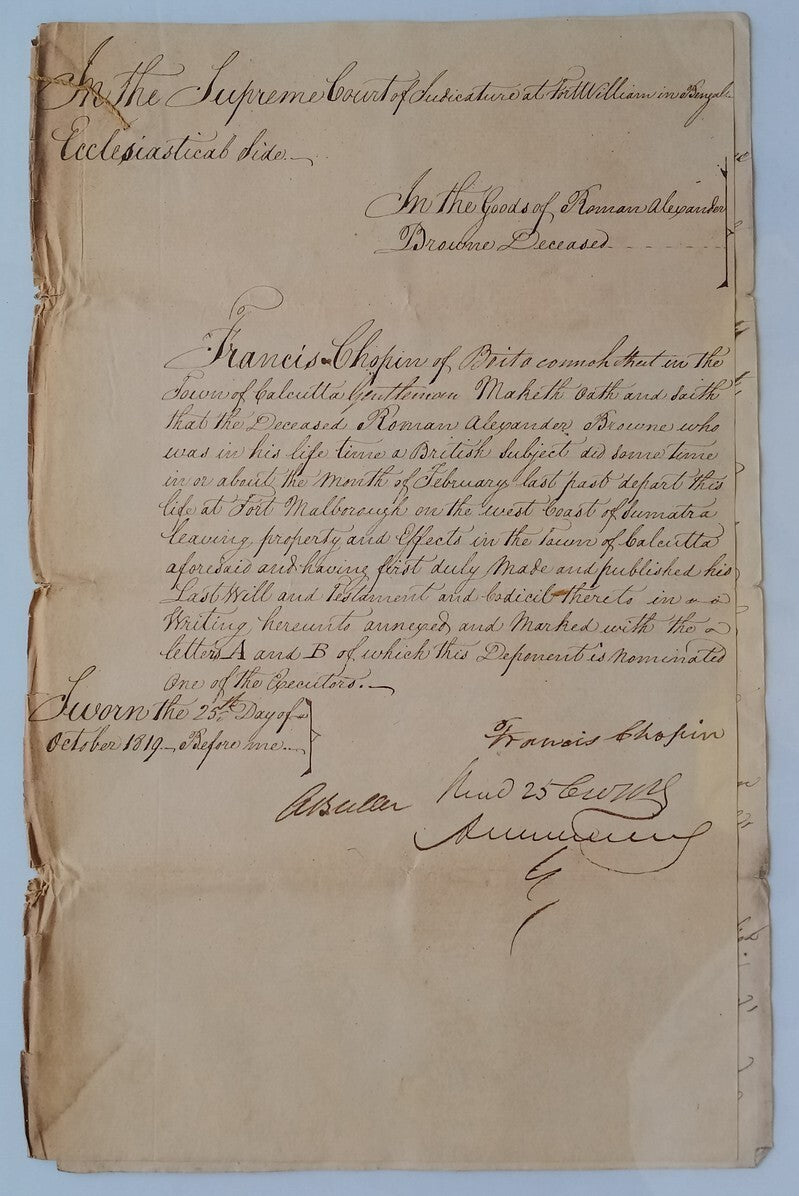 In the Supreme Court of Judicature at Fort William in Bengal
Ecclesiastical Side
In the Goods of Roman Alexander
Browne Deceased
Francis Chopin of in the
Town of Calcutta Gentleman Maketh Oath and saith
that the Deceased Roman Alexander Browne who
was in his life time a British Subject did some time
in or about the Month of February last past depart this
life at Fort Malborough on the west Coast of Sumatra
leaving property and Effects in the Town of Calcutta
aforesaid and having first duly Made and published his
Last Will and Testament and Codicil thereto in
Writing hereunto annexed and Marked with the
letters A and B of which this Deponent is nominated
One of the Executors.
Sworn the 25th Day of
October 1819 Before me
Francis Chopin
ABuller
25